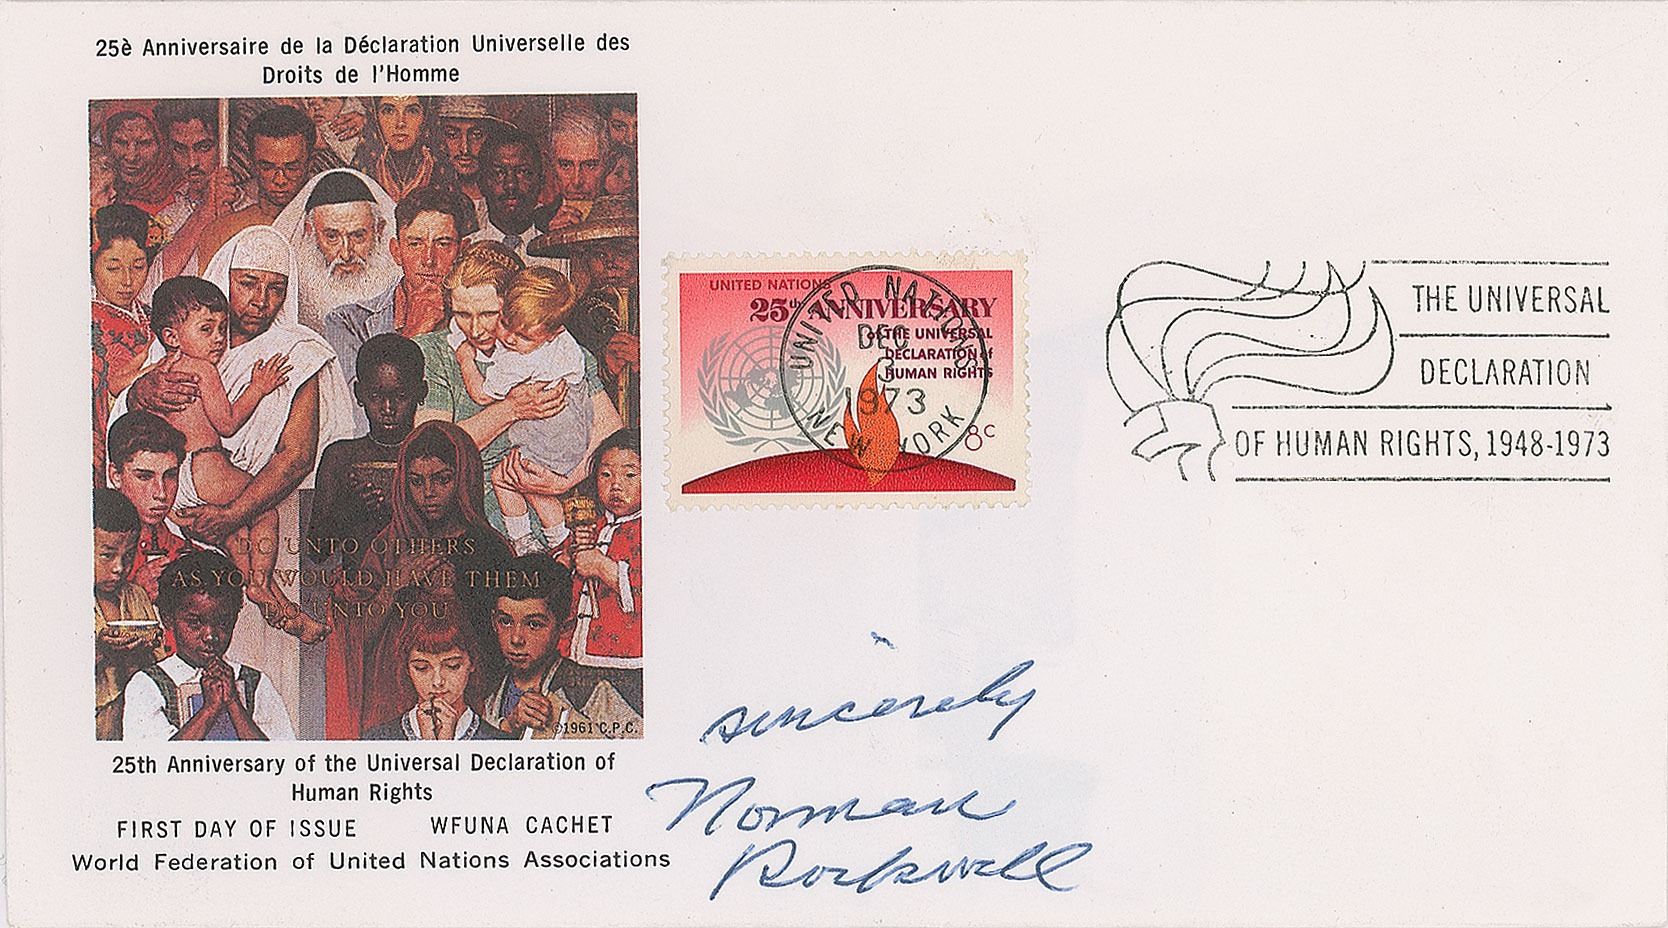 25è Anniversaire de la Déclaration Universelle des
Droits de l'Homme
DO UNTO OTHERS
AS YOU WOULD HAVE THEM
DO UNTO YOU
©1961 C.P.C.
25th Anniversary of the Universal Declaration of
Human Rights
FIRST DAY OF ISSUE WFUNA CACHET
World Federation of United Nations Associations
UNITED NATIONS
25th ANNIVERSARY
OF THE UNIVERSAL
DECLARATION of
HUMAN RIGHTS
8c
UNITED NATIONS
DEC
1973
NEW YORK
THE UNIVERSAL
DECLARATION
OF HUMAN RIGHTS, 1948-1973
sincerely
Norman
Rockwell